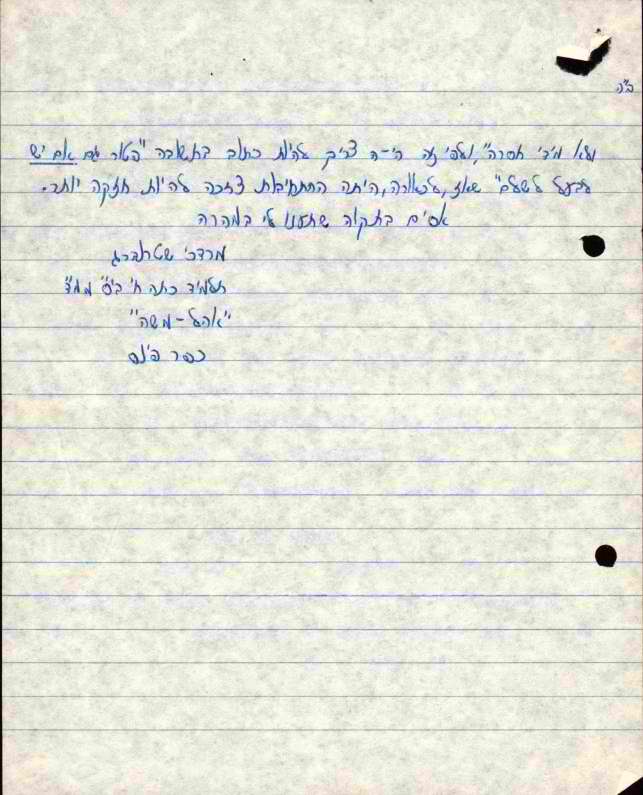 ב"ה
ולא מידי חסרה", ולפי זה הי-ה צריך להיות כתוב בתשובה "פטור גם אם יש
לבעל לשלם" שאז, לכאורה, היתה ההתחייבות צריכה להיות חזקה יותר.
אסים בתקוה שתענו לי במהרה
מרדכי שטרנברג
תלמיד כתה ח' בי"ס ממ"ד
"אהל-משה"
כפר פינס